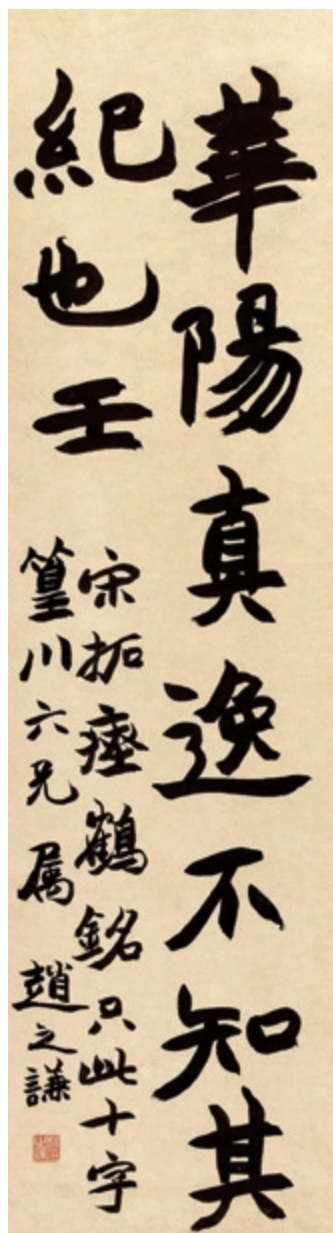 華陽真逸不知其
紀也壬
宋拓瘞鶴銘只此十字
篁川六兄属 趙之謙